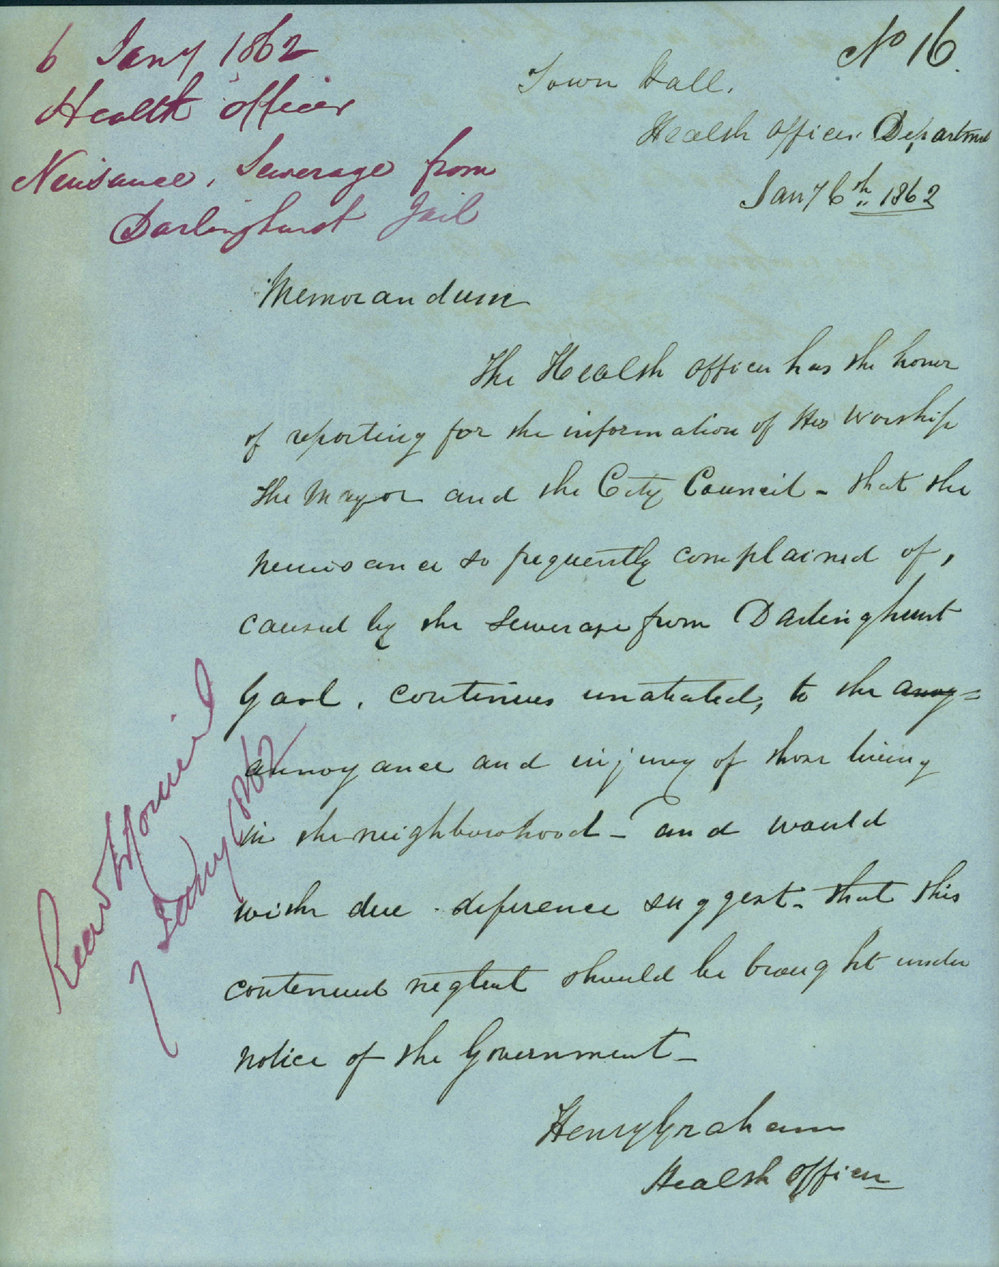 No 16.
6 Jany 1862
Health Officer
Nuisance, Sewerage from
Darlinghurst Jail
Town Hall,
Health Officer Departmt
Jany 6th 1862
Memorandum
The Health Officer has the honor
of reporting for the information of His Worship
the Mayor and the City Council - that the
nuisance so frequently complained of,
caused by the sewerage from Darlinghurst
Gaol, continues unabated, to the
annoyance and injury of those living
in the neighbourhood - and would
with due deference suggest - that this
continued neglect should be brought under
notice of the Government -
Henry Graham
Health Officer
7 Jany 1862